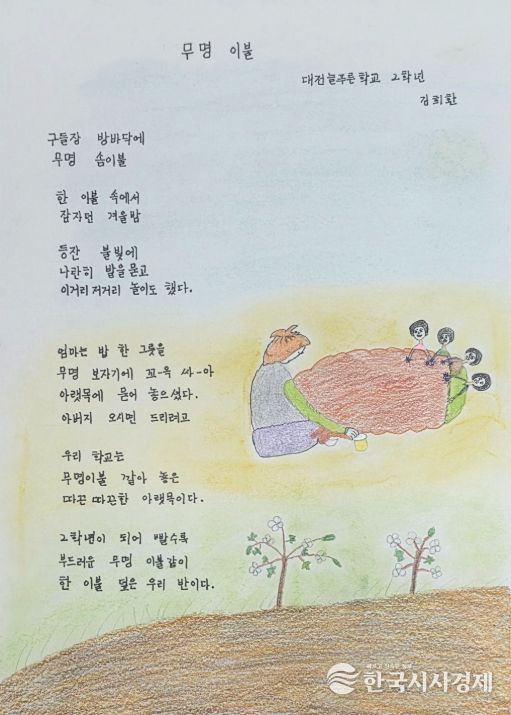 무명 이불
대전늘푸른학교 2학년
김희환
구들장 방바닥에
무명 솜이불
한 이불 속에서
잠자던 겨울밤
등잔 불빛에
나란히 발을 묻고
이거리저거리 놀이도 했다.
엄마는 밥 한 그릇을
무명 보자기에 꼬-옥 싸-아
아랫목에 묻어 놓으셨다.
아버지 오시면 드리려고
우리 학교는
무명이불 깔아 놓은
따끈 따끈한 아랫목이다.
2학년이 되어 빨수록
부드러운 무명 이불같이
한 이불 덮은 우리 반이다.
한국시사경제